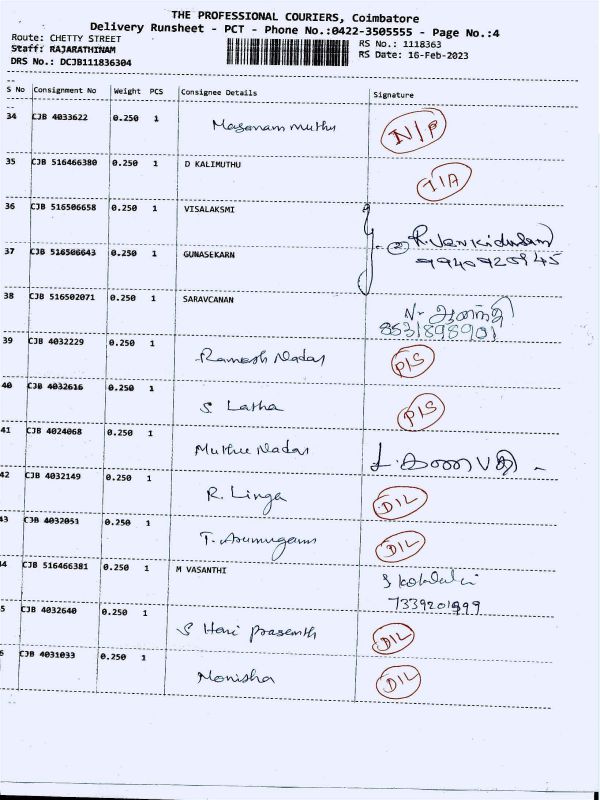 THE PROFESSIONAL COURIERS, Coimbatore
Delivery Runsheet - PCT - Phone No.:0422-3505555 - Page No.:4
Route: CHETTY STREET RS No.: 1118363
Staff: RAJARATHINAM RS Date: 16-Feb-2023
DRS No.: DCJB111836304
S No Consignment No Weight PCS Consignee Details Signature
34 CJB 4033622 0.250 1 N/P
35 CJB 516466380 0.250 1 D KALIMUTHU
36 CJB 516506658 0.250 1 VISALAKSMI
37 CJB 516506643 0.250 1 GUNASEKARN
9940920545
38 CJB 516502071 0.250 1 SARAVCANAN
8531898901
39 CJB 4032229 0.250 1 Ramesh Nadar P/S
40 CJB 4032616 0.250 1 S Latha P/S
41 CJB 4024068 0.250 1 Muthu Nadar
42 CJB 4032149 0.250 1 R. Linga D/L
43 CJB 4032051 0.250 1 T. Arumugam D/L
44 CJB 516466381 0.250 1 M VASANTHI
7339201999
5 CJB 4032640 0.250 1 S Hari prasanth D/L
6 CJB 4031033 0.250 1 Monisha D/L